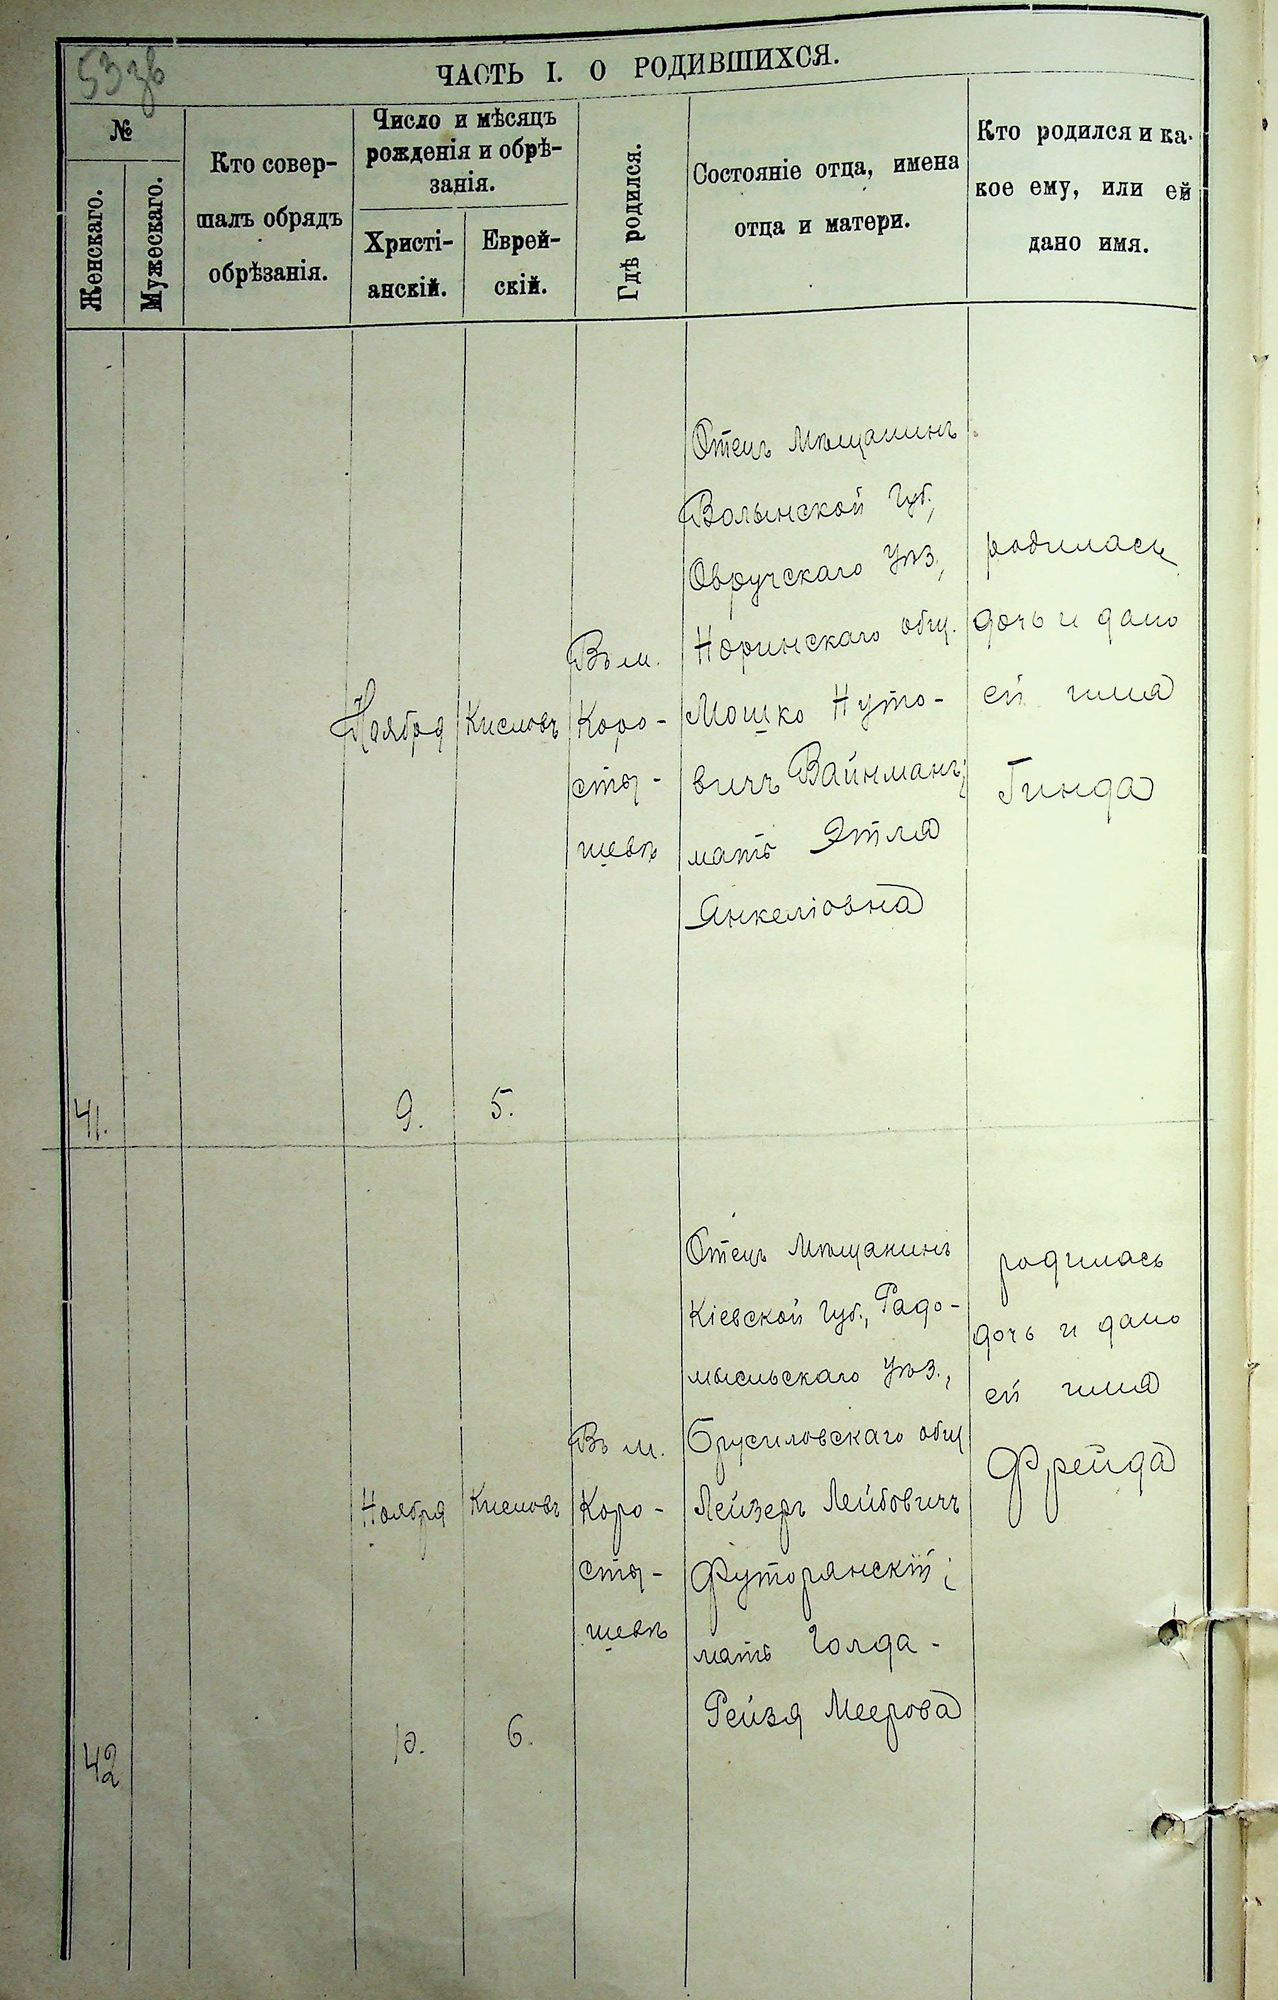 53 зв
ЧАСТЬ I. О РОДИВШИХСЯ.
№
Женскаго.
Мужескаго.
Кто совер-
шалъ обрядъ
обрѣзанія.
Число и мѣсяцъ
рожденія и обрѣ-
занія.
Христі-
анскій.
Еврей-
скій.
Гдѣ родился.
Состояніе отца, имена
отца и матери.
Кто родился и ка-
кое ему, или ей
дано имя.
41.
Ноября
9.
Кислевъ
5.
Въ м.
Коро-
сты-
шевѣ
Отецъ Мѣщанинъ
Волынской Губ.,
Овручскаго Уѣз.,
Норинскаго общ.
Мошко Нуто-
вичъ Вайнманъ;
мать Этля
Янкеліовна
родилась
дочь и дано
ей имя
Гинда
42
Ноября
10.
Кислевъ
6.
Въ м.
Коро-
сты-
шевѣ
Отецъ Мѣщанинъ
Кіевской Губ., Радо-
мысльскаго Уѣз.,
Брусиловскаго общ
Лейзеръ Лейбовичъ
Футорянскій;
мать Голда-
Рейзя Меерова
родилась
дочь и дано
ей имя
Фрейда